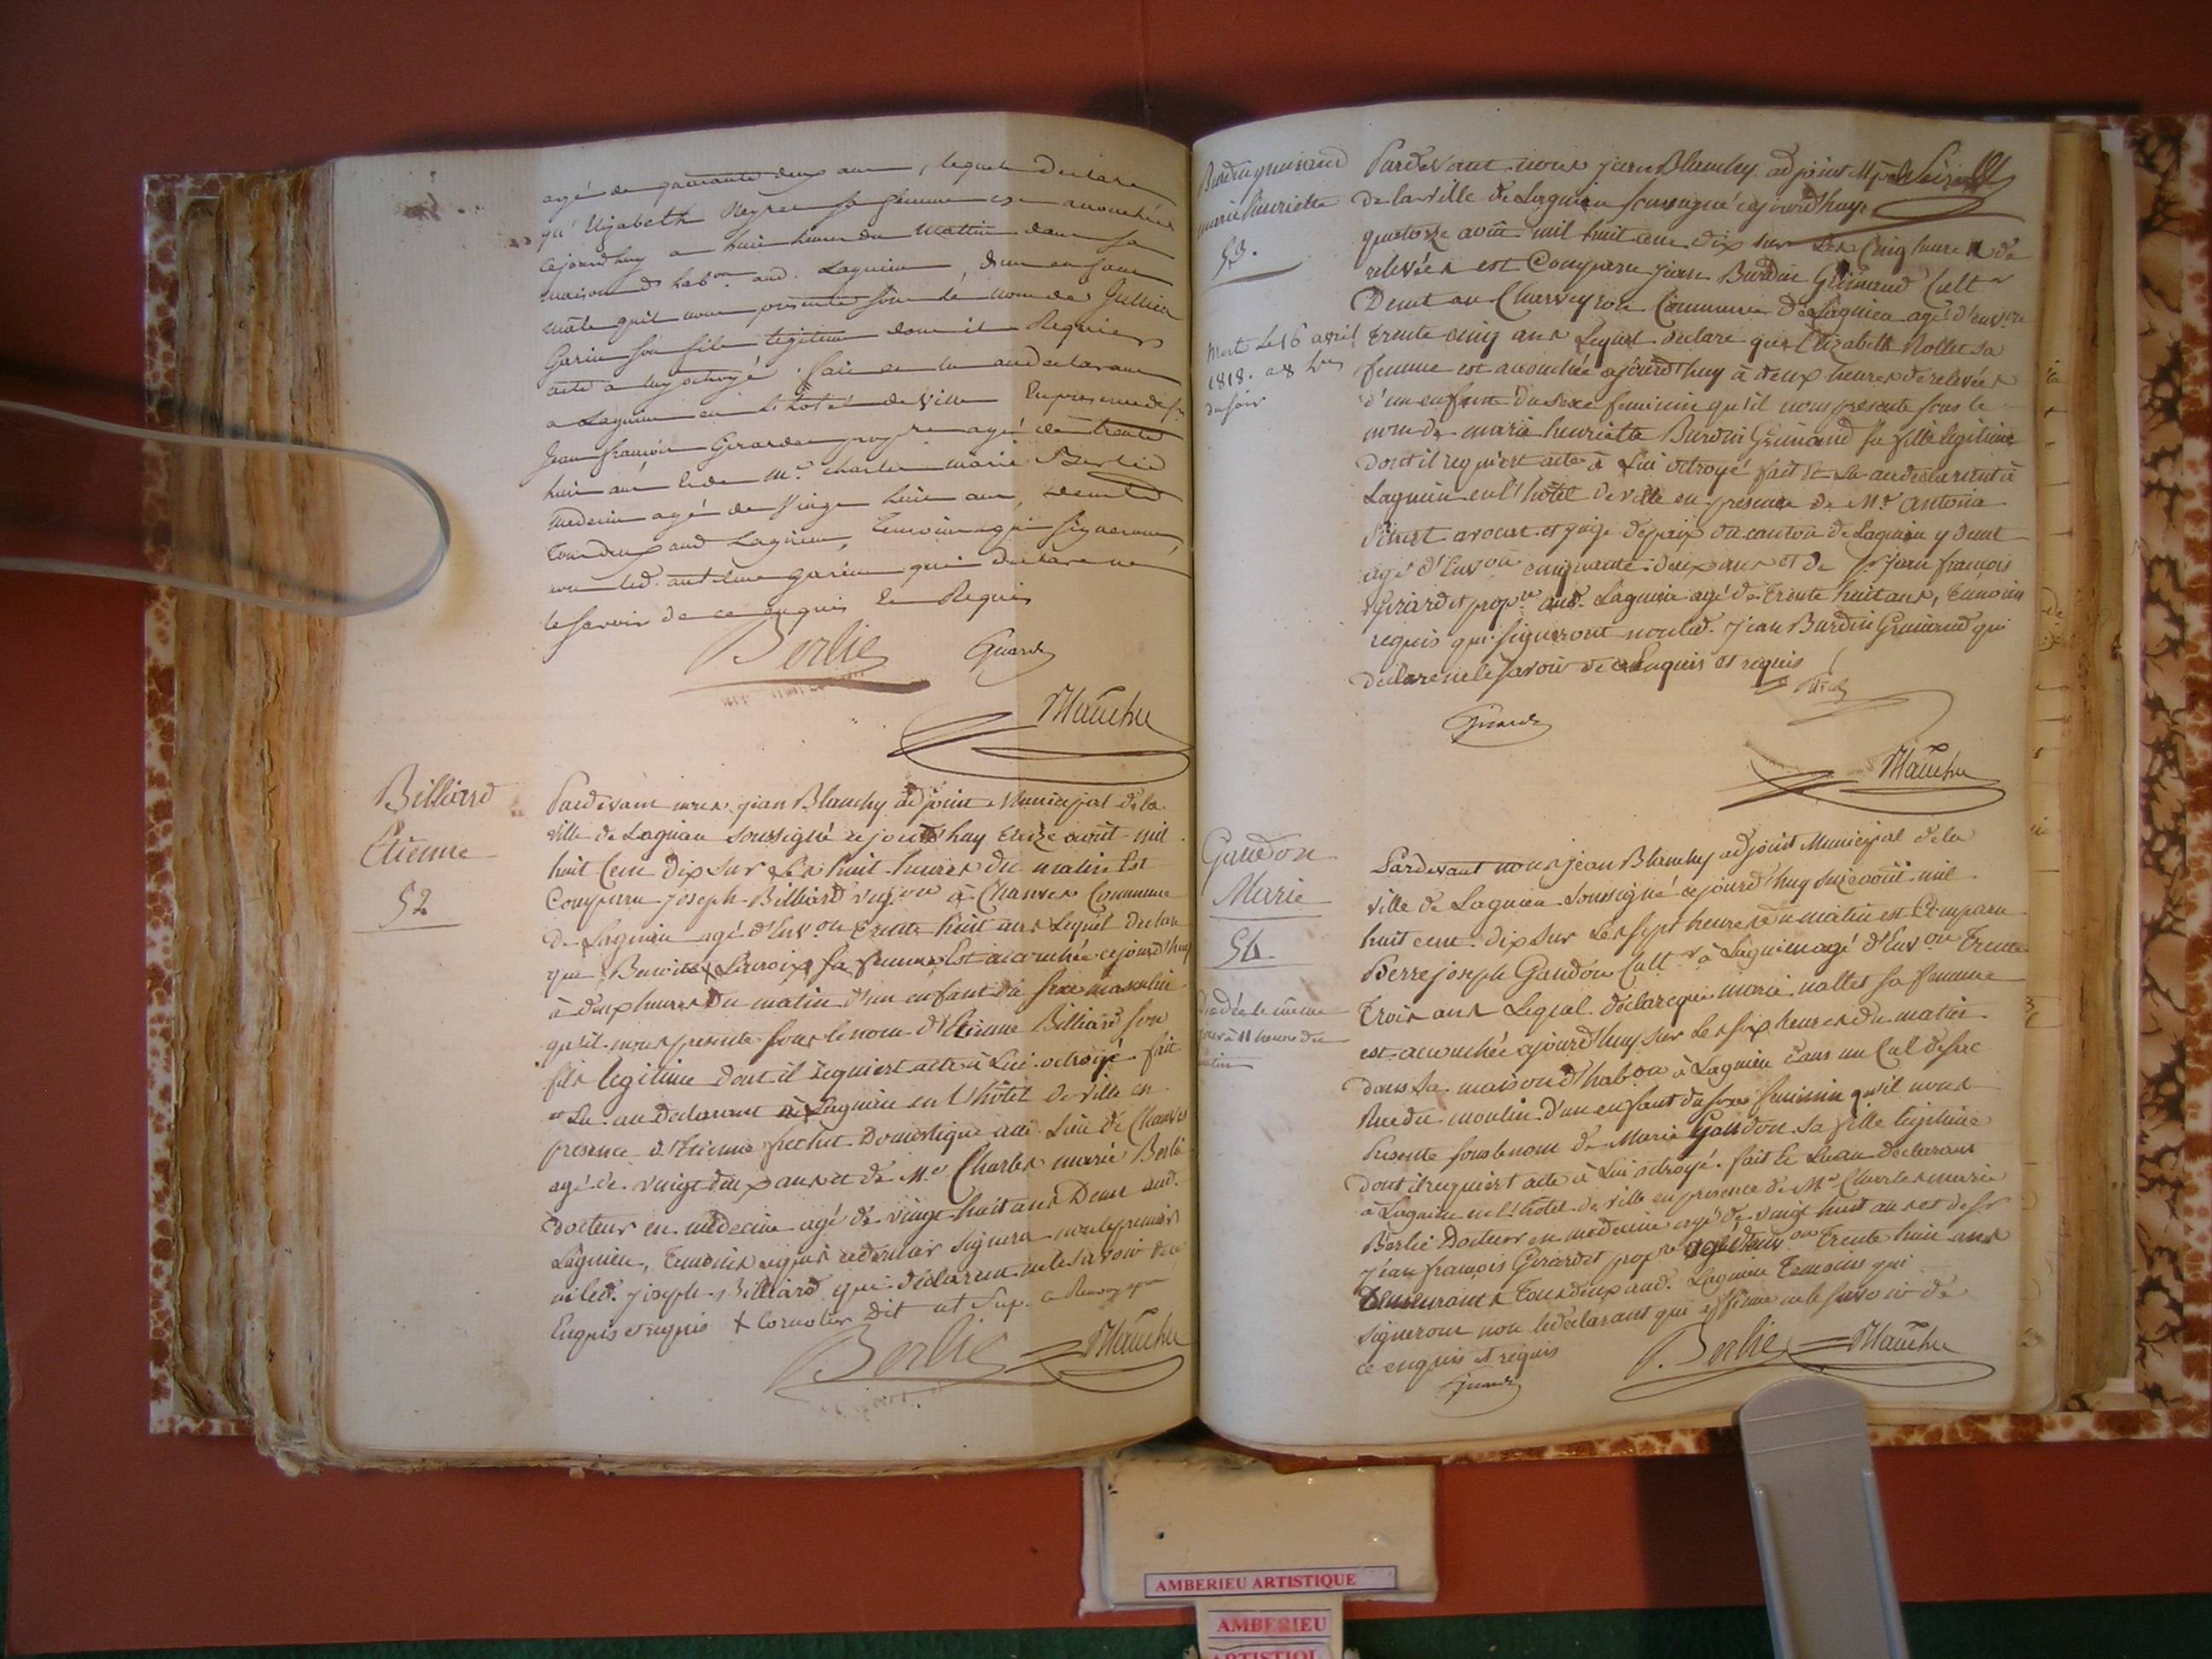 agé de quarante deux ans, lequel declare
qu'Elizabeth Reyre sa femme est accouchée
cejourdhuy a huit heures du mattin dans sa
maison d'habon aud. Lagnieu, d'un enfant
mâle qu'il nous présente sous le nom de Jullien
Garin son fils légitime dont il Requier
acte a luy octroyé. fait et lu au declarant
a Lagnieu en l'hotel de ville En presence de sr
Jean françois Girardet propre agé de trente
huit ans et de Mr. Charles marie Berlié
medecin agé de vingt huit ans, demt
tous deux aud Lagnieu, temoins qui signeront
non led. antelme garin qui declare ne
le savoir de ce enquis Et Requis
Berlié Girardet
Blanchy
Billiard
Etienne
52
Pardevant nous jean Blanchy adjoint Municipal de la
ville de Lagnieu soussigné cejourdhuy treize août mil
huit Cent dix sur Les huit heures du matin Est
Comparu joseph Billiard vigon à Chanves Commune
De Lagnieu agé d'Envon trente huit ans Lequel declare
que Benoite X sa femme Est accouchée cejourd'huy
à deux heures du matin d'un enfant du sexe masculin
qu'il nous presente sous le nom d'Etienne Billiard son
fils legitime dont il requiert acte à Lui octroyé fait
et Lu au declarant à Lagnieu en l'hôtel de ville en
presence d'Etienne Domestique aud. Lieu de Chanves
agé de vingt deux ans et de Mr. Charles marie Berlié
docteur en médecine agé de vingt huit ans Demt aud.
Lagnieu, temoins requis ce dernier signera non le premier
ni led. joseph Billiard qui déclarent ne le savoir de ce
Enquis et requis X dit ut sup.
Berlié Blanchy
Burdin grimand
marie henriette
53.
Mort le 16 avril
1818. a 8 hres
du soir
Pardevant nous jean Blanchy adjoint Mpal
de la ville de Lagnieu soussigné cejourdhuy
quatorze août mil huit cent dix sur Les Cinq heures de
relevées est Comparu jean Burdin Grimand Cultr
Demt au Charveyron Commune de Lagnieu agé d'envon
trente cinq ans Lequel declare que Elizabeth Nollet sa
femme est accouchée cejourd'huy à deux heures de relevées
d'un enfant du sexe feminin qu'il nous presente sous le
nom de marie henriette Burdin Grimand sa fille legitime
dont il requiert acte à Lui octroyé fait et Lu au declarant à
Lagnieu en l'hôtel de ville en presence de Mr. Antoine
avocat et juge de paix du canton de Lagnieu y demt
agé d'Envon cinquante deux ans et de Sr jean françois
Girardet propre aud. Lagnieu agé de trente huit ans, temoins
requis qui signeront non led. jean Burdin Grimand qui
declare ne le savoir de ce Enquis et requis
Girardet
Blanchy
Gandon
Marie
54.
Décédée le même
jour à 11 heures du
matin
Pardevant nous jean Blanchy adjoint Municipal de la
ville de Lagnieu soussigné cejourd'huy seize août mil
huit cent dix sur Les sept heures du matin est Comparu
Pierre joseph Gandon Cultr à Lagnieu agé d'Envon trente
trois ans Lequel déclare que marie nallet sa femme
est accouchée cejourd'huy sur Les six heures du matin
dans sa maison d'habon à Lagnieu dans un Cul de sac
Rue du moulin d'un enfant du sexe feminin qu'il nous
Presente sous le nom de Marie Gandon sa fille legitime
dont il requiert acte à Lui octroyé. fait Et Lu au déclarant
à Lagnieu en l'hôtel de ville en presence de Mr Charles marie
Berlié Docteur en medecine agé de vingt huit ans et de Sr
jean françois Girardet propre agé d'Envon trente huit ans
Demeurants tous deux aud. Lagnieu temoins qui
signeront non le déclarant qui affirme ne le savoir de
ce enquis et requis
Girardet Berlié Blanchy
AMBERIEU ARTISTIQUE
AMBERIEU
ARTISTIQUE